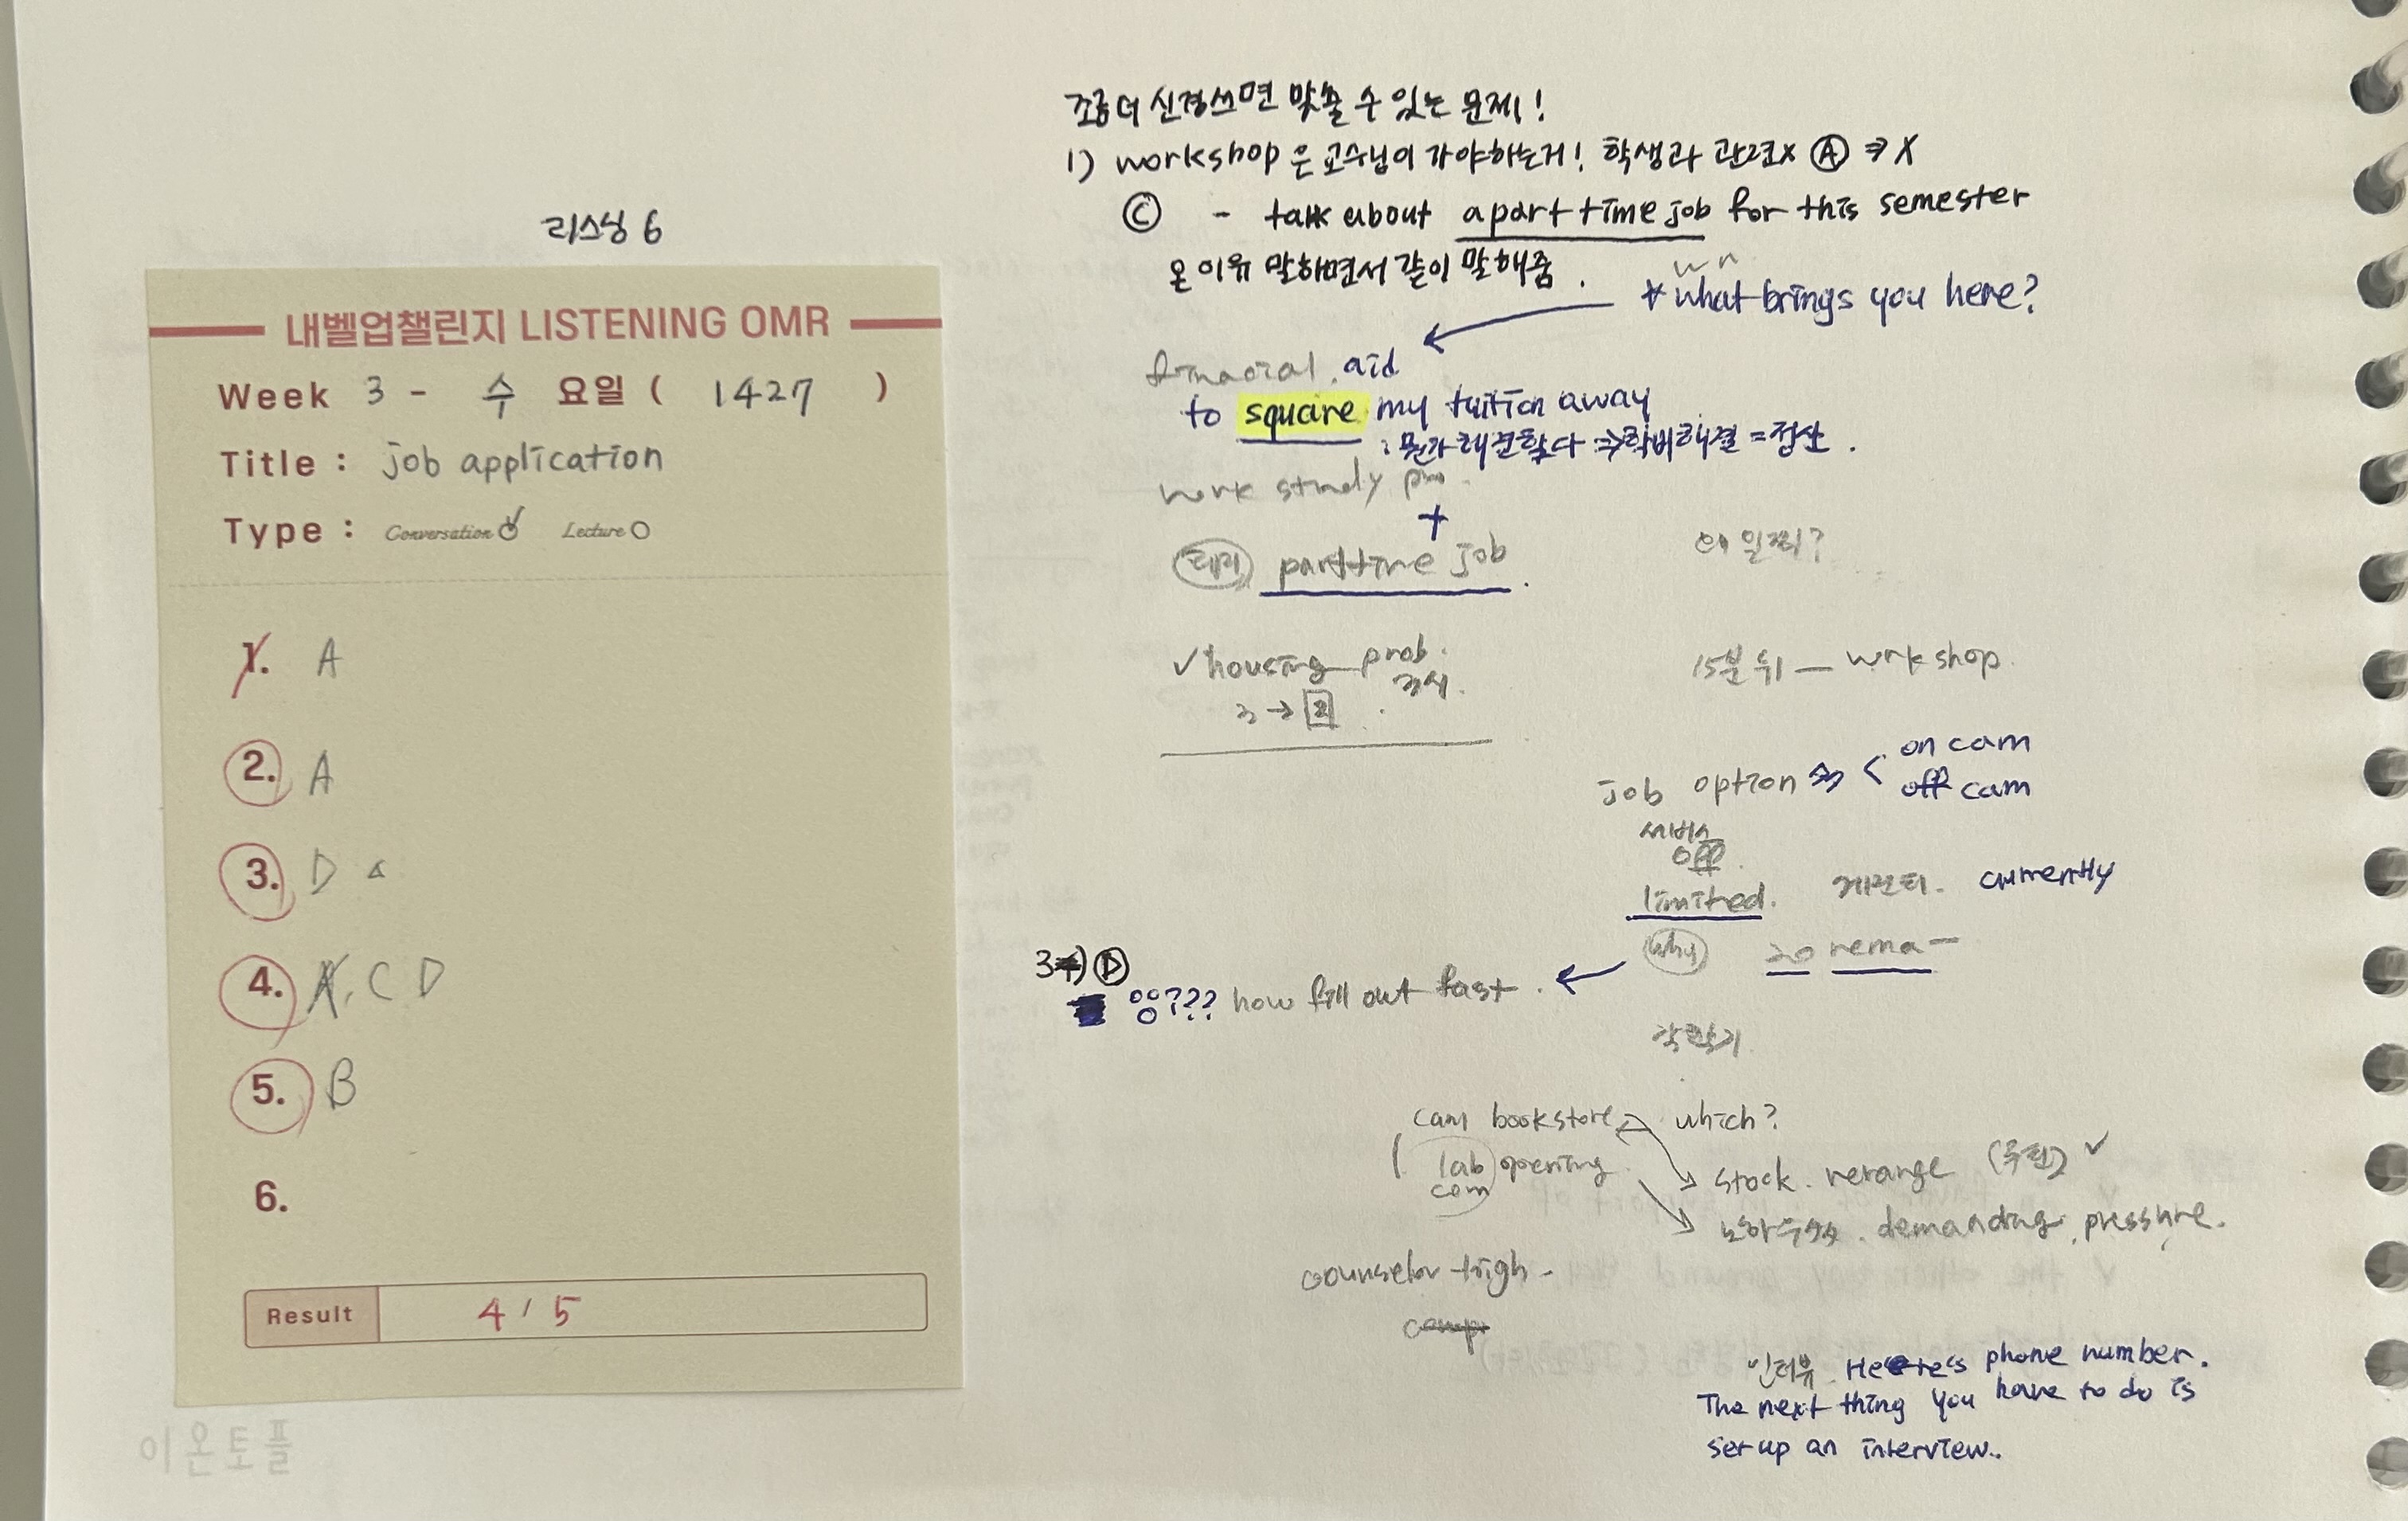 리스닝 6
내벨업챌린지 LISTENING OMR
Week 3 - 수 요일 ( 1427 )
Title : job application
Type : Conversation Lecture
1. A
2. A
3. D
4. A, C D
5. B
6.
Result 4 / 5
이온토플
조금 더 신경쓰면 맞출 수 있는 문제!
1) workshop은 교수님이 가야하는거! 학생과 관련x Ⓐ ⇒ X
Ⓒ - talk about a part time job for this semester
온 이유 말하면서 같이 말해줌.
* what brings you here?
finacial. aid
to square my tuition away
: 뭔가 해결한다 ⇒ 학비 해결 = 정산.
work study pro.
+
parttime job.
왜 일찍?
✓ housing prob.
3 → 2
15분 뒤 — workshop.
job option < on cam
off cam
서비스
off.
limited. currently
why 20 rema-
3) Ⓓ
응??? how fill out fast.
cam bookstore which?
lab opening.
com
stock. rerange ✓
demanding, pressure.
counselor
camp
인터뷰. Here's phone number.
The next thing you have to do is
set up an interview.